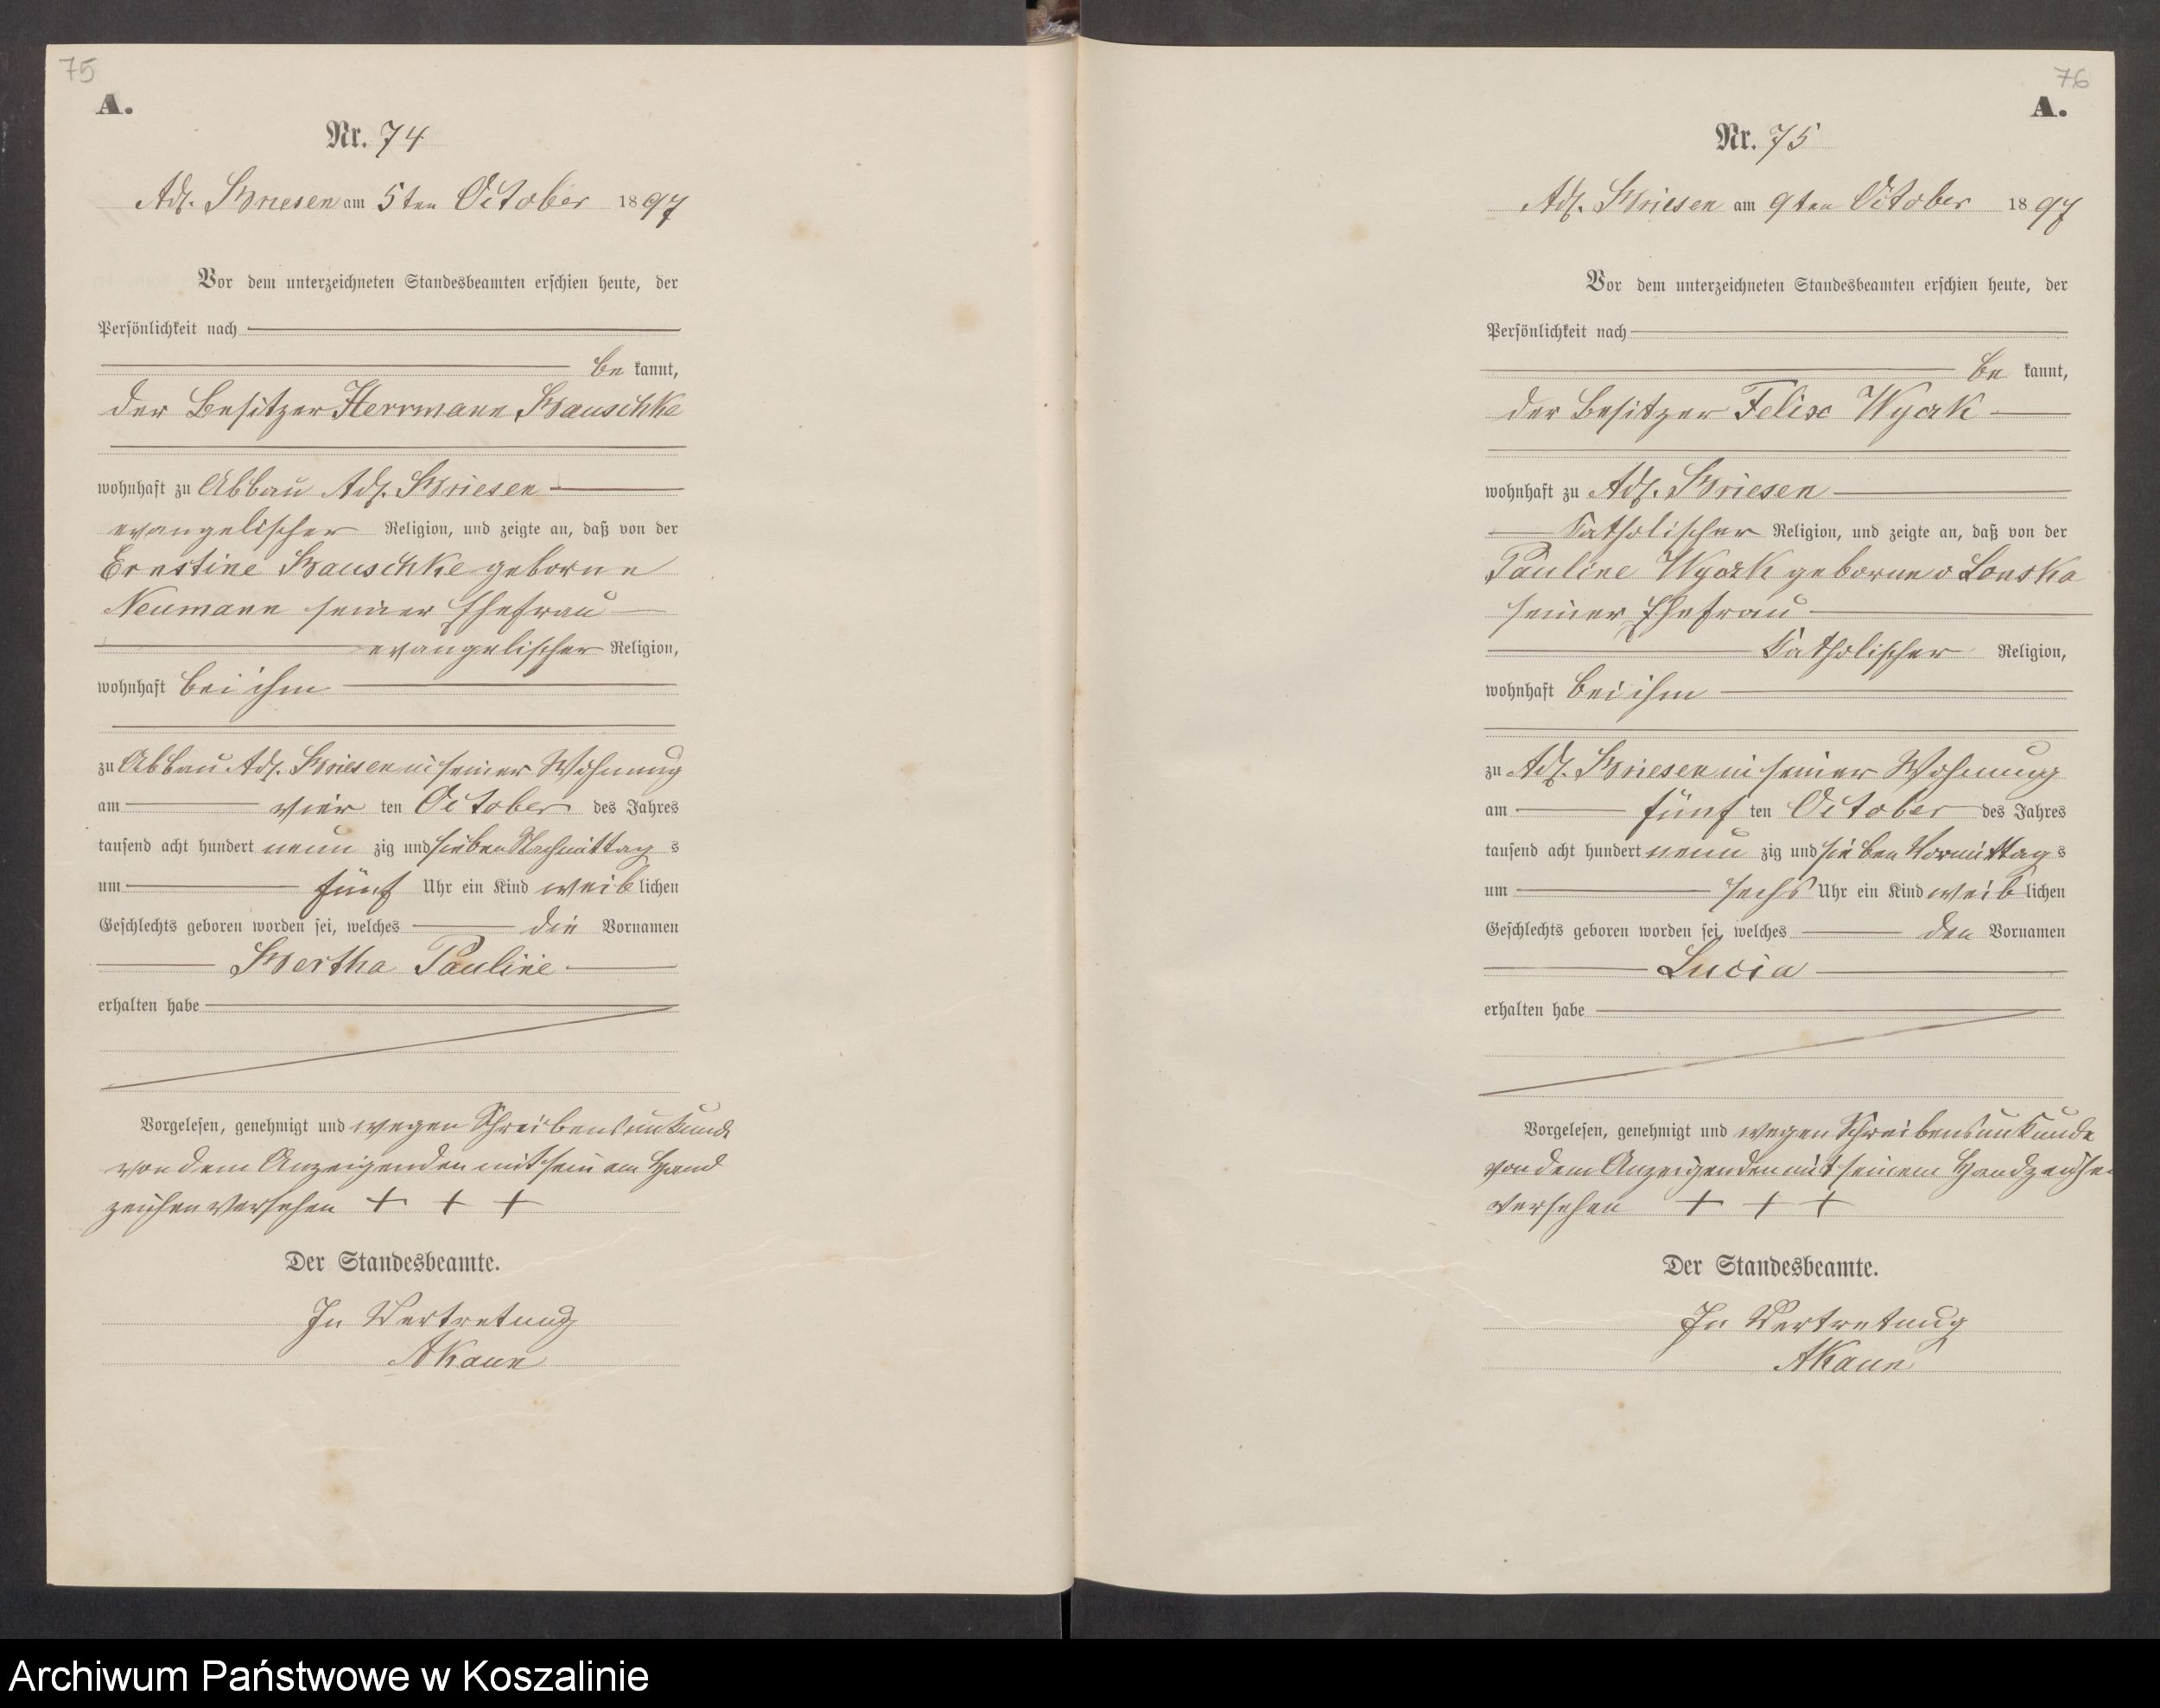 75
A.
Nr. 74
Adl. Briesen am 5ten October 1897
Vor dem unterzeichneten Standesbeamten erschien heute, der
Persönlichkeit nach
be kannt,
der Besitzer Herrmann Bauschke
wohnhaft zu Abbau Adl. Briesen
evangelischer Religion, und zeigte an, daß von der
Ernstine Bauschke geborne
Neumann seiner Ehefrau
evangelischer Religion,
wohnhaft bei ihm
zu Abbau Adl. Briesen in seiner Wohnung
am vier ten October des Jahres
tausend acht hundert neun zig und sieben Nachmittag s
um fünf Uhr ein Kind weib lichen
Geschlechts geboren worden sei, welches die Vornamen
Bertha Pauline
erhalten habe
Vorgelesen, genehmigt und wegen Schreibensunkunde
von dem Anzeigenden mit seinem Hand
zeichen versehen + + +
Der Standesbeamte.
In Vertretung
76
A.
Nr. 75
Adl. Briesen am 9ten October 1897
Vor dem unterzeichneten Standesbeamten erschien heute, der
Persönlichkeit nach
be kannt,
der Besitzer Felix
wohnhaft zu Adl. Briesen
Katholischer Religion, und zeigte an, daß von der
Pauline geborne
seiner Ehefrau
Katholischer Religion,
wohnhaft bei ihm
zu Adl. Briesen in seiner Wohnung
am fünf ten October des Jahres
tausend acht hundert neun zig und sieben Vormittag s
um sechs Uhr ein Kind weib lichen
Geschlechts geboren worden sei, welches den Vornamen
Lucia
erhalten habe
Vorgelesen, genehmigt und wegen Schreibensunkunde
von dem Anzeigenden mit seinem Handzeichen
versehen + + +
Der Standesbeamte.
In Vertretung
Archiwum Państwowe w Koszalinie